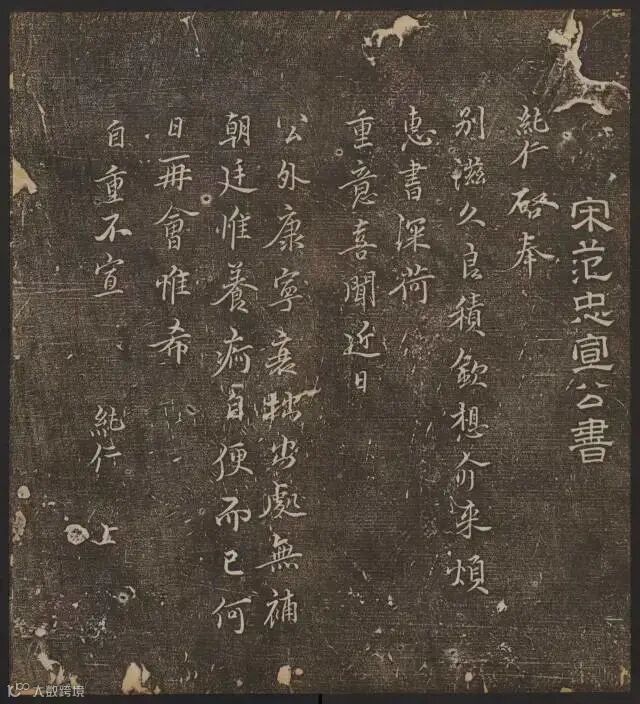 宋范忠宣公書
純仁啓奉
別滋久良積欽想介来煩
惠書深荷
重意喜聞近日
公外康寧衰拙出處無補
朝廷惟養痾自便而已何
日再會惟希
自重不宣 純仁 上
大数跨境